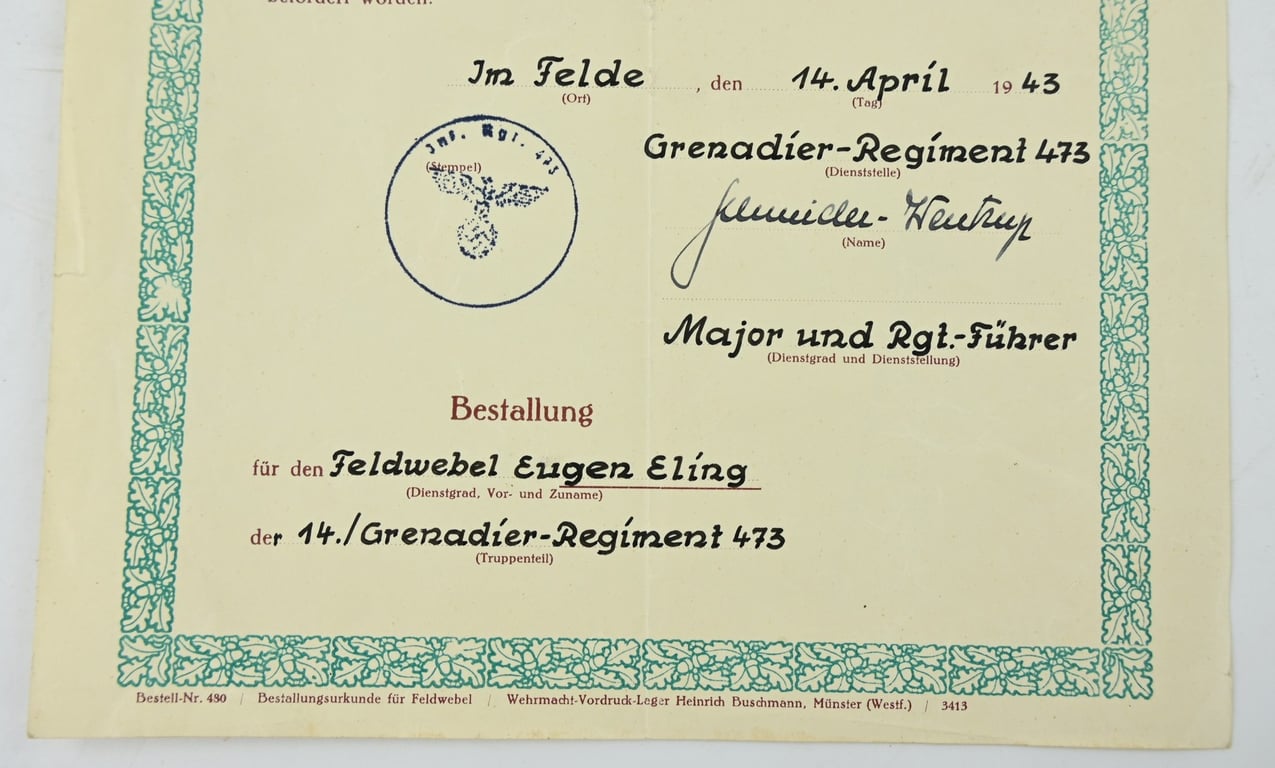 befördert worden.
Im Felde , den 14. April 1943
(Ort) (Tag)
Inf. Rgt. 473
(Stempel)
Grenadier-Regiment 473
(Dienststelle)
Schneider-Wentrup
(Name)
Major und Rgt.-Führer
(Dienstgrad und Dienststellung)
Bestallung
für den Feldwebel Eugen Eling
(Dienstgrad, Vor- und Zuname)
der 14./Grenadier-Regiment 473
(Truppenteil)
Bestell-Nr. 480 / Bestallungsurkunde für Feldwebel / Wehrmacht-Vordruck-Lager Heinrich Buschmann, Münster (Westf.) / 3413